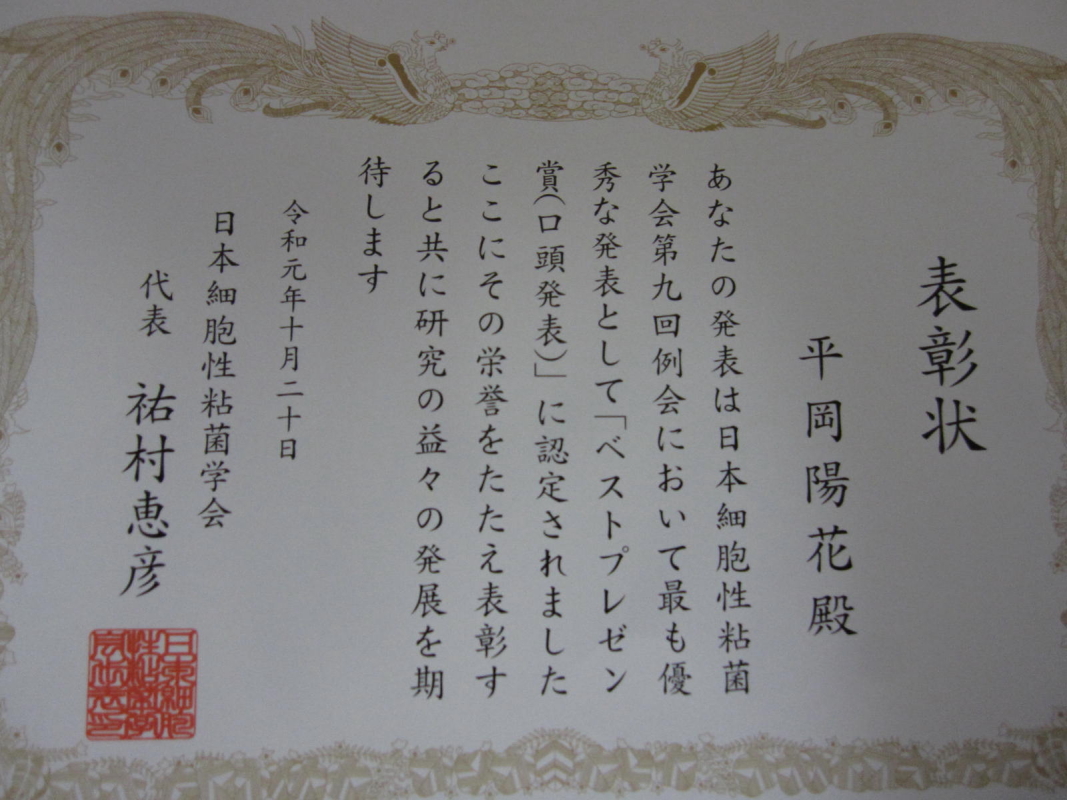 表彰状
平岡陽花殿
あなたの発表は日本細胞性粘菌
学会第九回例会において最も優
秀な発表として「ベストプレゼン
賞(口頭発表)」に認定されました
ここにその栄誉をたたえ表彰す
ると共に研究の益々の発展を期
待します
令和元年十月二十日
日本細胞性粘菌学会
代表 祐村恵彦